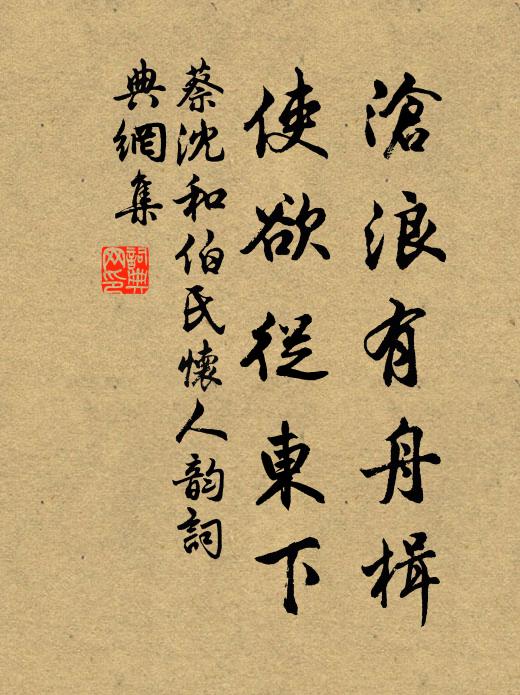 滄浪有舟楫
使欲從東下
蔡沈和伯氏懷人韵詞
典網集
詞典
网印